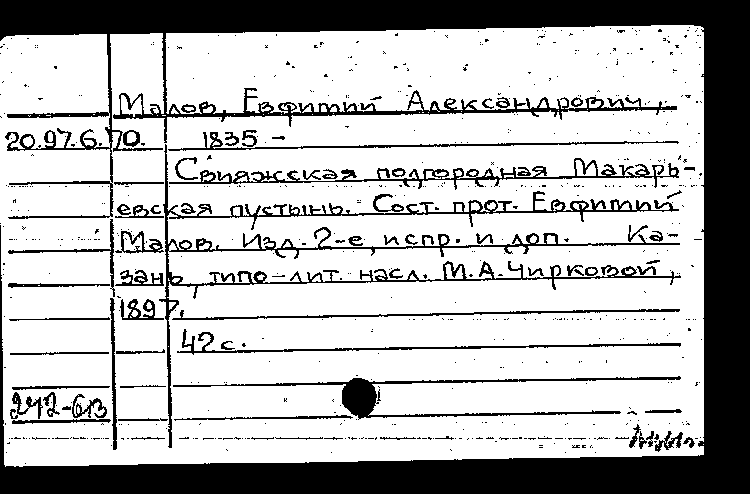 Малов, Евфимий Александрович,
20.97.6.70. 1835 -
Свияжская подгородная Макарь-
евская пустынь. Сост. прот. Евфимий
Малов. Изд. 2-е, испр. и доп. Ка-
зань, типо-лит. насл. М.А. Чирковой,
1897.
42 с.